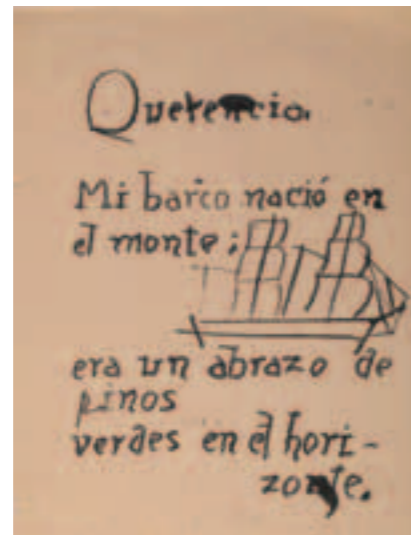 Querencio.
Mi barco nació en
el monte;
era un abrazo de
pinos
verdes en el hori-
zonte.